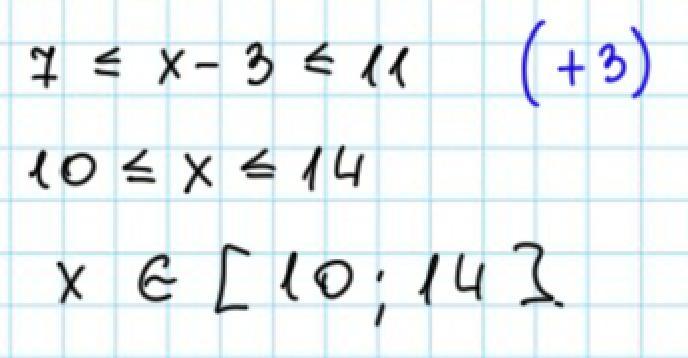 7 ≤ x - 3 ≤ 11 (+3)
10 ≤ x ≤ 14
x ∈ [10; 14].